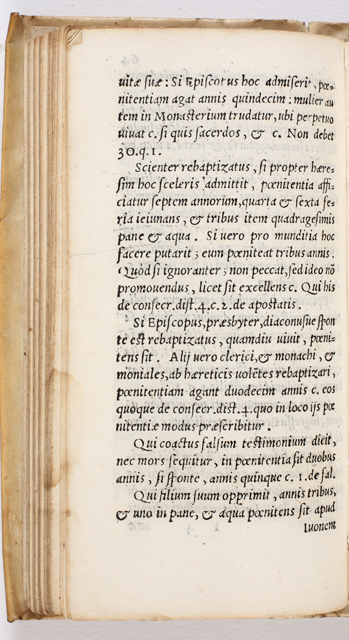 uitæ suæ: Si Episcopus hoc admiserit, pœ-
nitentiam agat annis quindecim: mulier au
tem in Monasterium trudatur, ubi perpetuo
uiuat c. si quis sacerdos, & c. Non debet
30.q.1.
Scienter rebaptizatus, si propter hære-
sim hoc sceleris admittit, pœnitentia affi-
ciatur septem annorum, quarta & sexta fe-
ria ieiunans, & tribus item quadragesimis
pane & aqua. Si uero pro munditia hoc
facere putarit; eum pœniteat tribus annis.
Quòd si ignoranter; non peccat, sed ideo nō
promouendus, licet sit excellens c. Qui his
de consecr.dist.4.c.2.de apostatis.
Si Episcopus, præsbyter, diaconusue spon
te est rebaptizatus, quamdiu uiuit, pœni-
tens sit. Alij uero clerici, & monachi, &
moniales, ab hæreticis uolētes rebaptizari,
pœnitentiam agant duodecim annis c. eos
quoque de consecr.dist.4.quo in loco ijs pœ
nitentiæ modus præscribitur.
Qui coactus falsum testimonium dicit,
nec mors sequitur, in pœnitentia sit duobus
annis, si sponte, annis quinque c. 1. de fal.
Qui filium suum opprimit, annis tribus,
& uno in pane, & aqua pœnitens sit apud
Iuonem